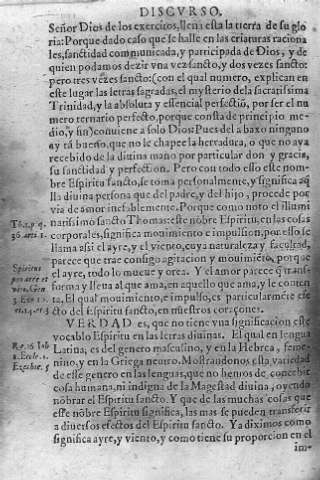 DISCVRSO.
Señor Dios de los exercitos, llena esta la tierra de su glo
ria: Porque dado caso que se halle en las criaturas raciona
les, sanctidad comunicada, y participada de Dios, y de
quien podamos dezir vna vez sancto, y dos vezes sancto:
pero tres vezes sancto: (con el qual numero, explican en
este lugar las letras sagradas, el mysterio dela sacratissima
Trinidad, y la absoluta y essencial perfectiō, por ser el nu
mero ternario perfecto, porque consta de principio me-
dio, y fin) conuiene a solo Dios: Pues de la baxo ninguno
ay tā bueno, que no le chapee la herradura, o que no aya
recebido de la diuina mano por particular don y gracia,
su sanctidad y perfection. Pero con todo esso este nom
bre Espiritu sancto, se toma personalmente, y significa aq̄
lla diuina persona que del padre, y del hijo, procede por
via de amor inefablemente. Porque como noto el illumi
natissimo sancto Thomas: este nōbre Espiritu, en las cosas
corporales, significa mouimiento e impulsion, por esso se
llama assi el ayre, y el viento, cuya naturaleza y facultad,
parece que trae consigo agitacion y mouimiēto, porque
el ayre, todo lo mueue y orea. Y el amor parece q̄ transf
forma y lleua al que ama, en aquello que ama, y le conten
ta. El qual mouimiento, e impulso, es particularmēte efe
cto del Espiritu sancto, en nuestros coraçones.
VERDAD es, que no tiene vna significacion este
vocablo Espiritu en las letras diuinas. El qual en lengua
Latina, es del genero masculino, y en la Hebrea, feme-
nino, y en la Griega neutro. Mostrandonos esta variedad
de este genero en las lenguas, que no hemos de concebir
cosa humana, ni indigna de la Magestad diuina, oyendo
nōbrar el Espiritu sancto. Y que de las muchas cosas que
este nōbre Espiritu significa, las mas se pueden transferir
a diuersos efectos del Espiritu sancto. Ya diximos como
significa ayre, y viento, y como tiene su proporcion en el
im-
Tho. 1. p. q.
36. arti. 1.
Spiritus